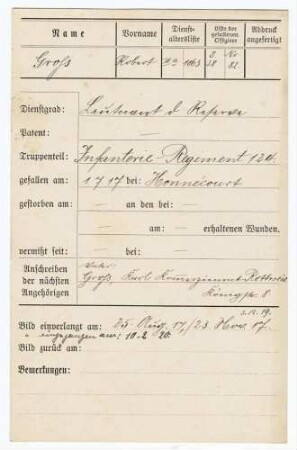 Name Vorname Dienst-altersliste Liste der gefallenen Offiziere Abdruck angefertigt
Groß Robert 1863 D. 28 Nr 82
Dienstgrad: Leutnant d Reserve
Patent: —
Truppenteil: Infanterie-Regiment 124.
gefallen am: 1.7.17 bei: Honnécourt
gestorben am: — an den bei: —
— am: — erhaltenen Wunden.
vermißt seit: — bei: —
Anschreiben der nächsten Angehörigen
Vater:
Groß, Karl Kommerzienrat
Königstr 8
Bild einverlangt am: 25. Aug. 17/23. Nov. 17. 3.12.19.
" eingegangen am: 10.2.20
Bild zurück am:
Bemerkungen: